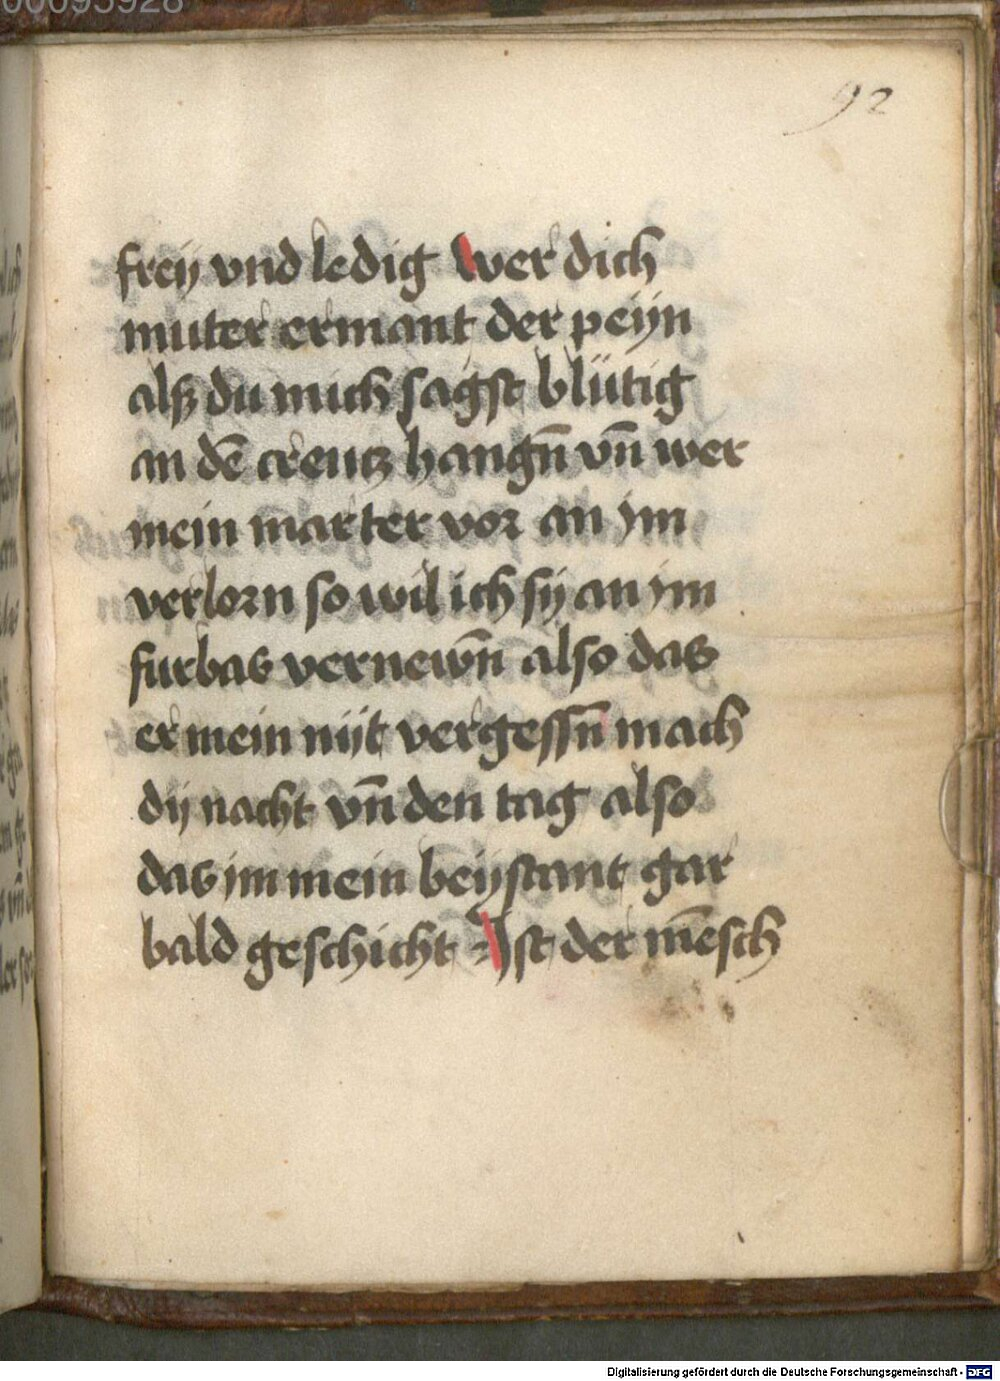 92
freÿ vnd ledig Wer dich
muter ermant der peÿn
alß du mich sagst blütig
an dē creutz hangn̄ vn̄ wer
mein marter vor an ÿm
verlorn so wil ich sÿ an ÿm
furbas vernewn̄ also das
er mein nÿt vergessn̄ mach
dÿ nacht vn̄ den tag also
das ÿm mein beÿstant gar
bald geschicht Ist der mēsch
Digitalisierung gefördert durch die Deutsche Forschungsgemeinschaft - DFG